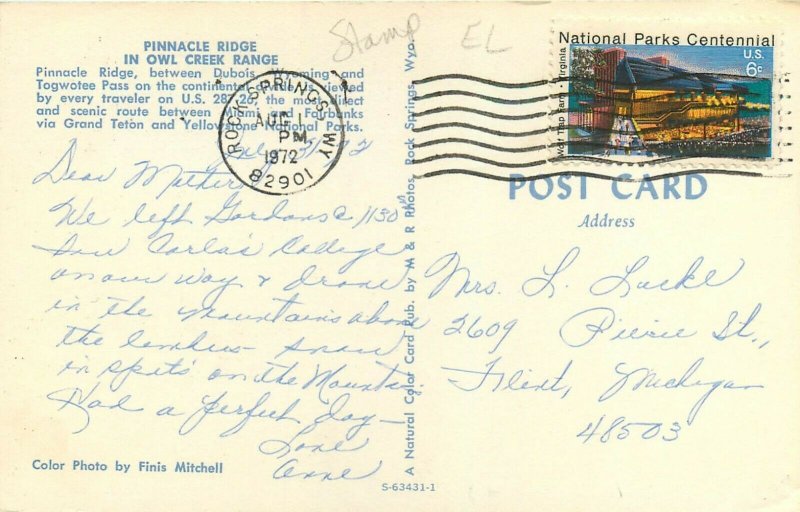 Stamp EL
PINNACLE RIDGE
IN OWL CREEK RANGE
Pinnacle Ridge, between Dubois, Wyoming and
Togwotee Pass on the continental viewed
by every traveler on U.S. 287-26, the most direct
and scenic route between Miami and Fairbanks
via Grand Teton and Yellowstone National Parks.
ROCK SPRINGS, WY
AUG 1
PM
1972
82901
National Parks Centennial
U.S.
6c
Wolf Trap Farm, Virginia
POST CARD
Address
Dear Mother,
We left Gordons @ 1130
Saw Carla's College
on our way & drove
in the mountains above
the timber - snow
in spots on the Mountain,
Had a perfect day -
Love
Anne
Mrs. L. Lucke
2609 Pierce St.,
Flint, Michigan
48503
A Natural Color Card Pub. by M & R Photos, Rock Springs, Wyo.
Color Photo by Finis Mitchell
S-63431-1